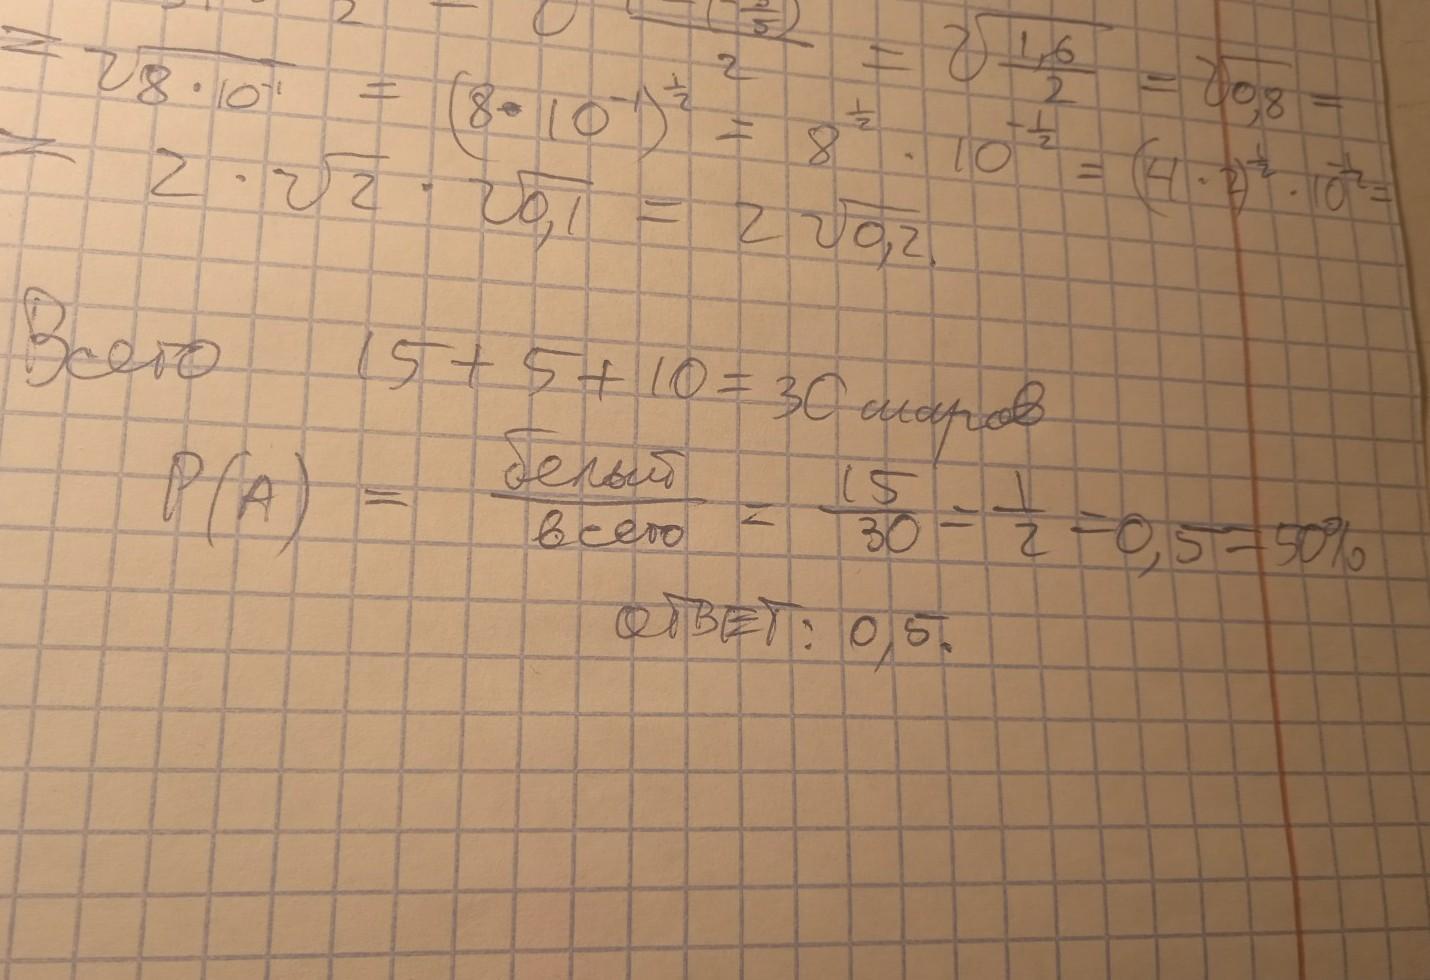 2 = √((-(-3/5))/2) = √(1,6/2) = √0,8 =
= √(8·10⁻¹) = (8·10⁻¹)^½ = 8^½ · 10^-½ = (4·2)^½ · 10^-½ =
= 2·√2·√0,1 = 2√0,2.
Всего 15+5+10=30 шаров
P(A) = белый/всего = 15/30 = 1/2 = 0,5 = 50%
ОТВЕТ: 0,5.